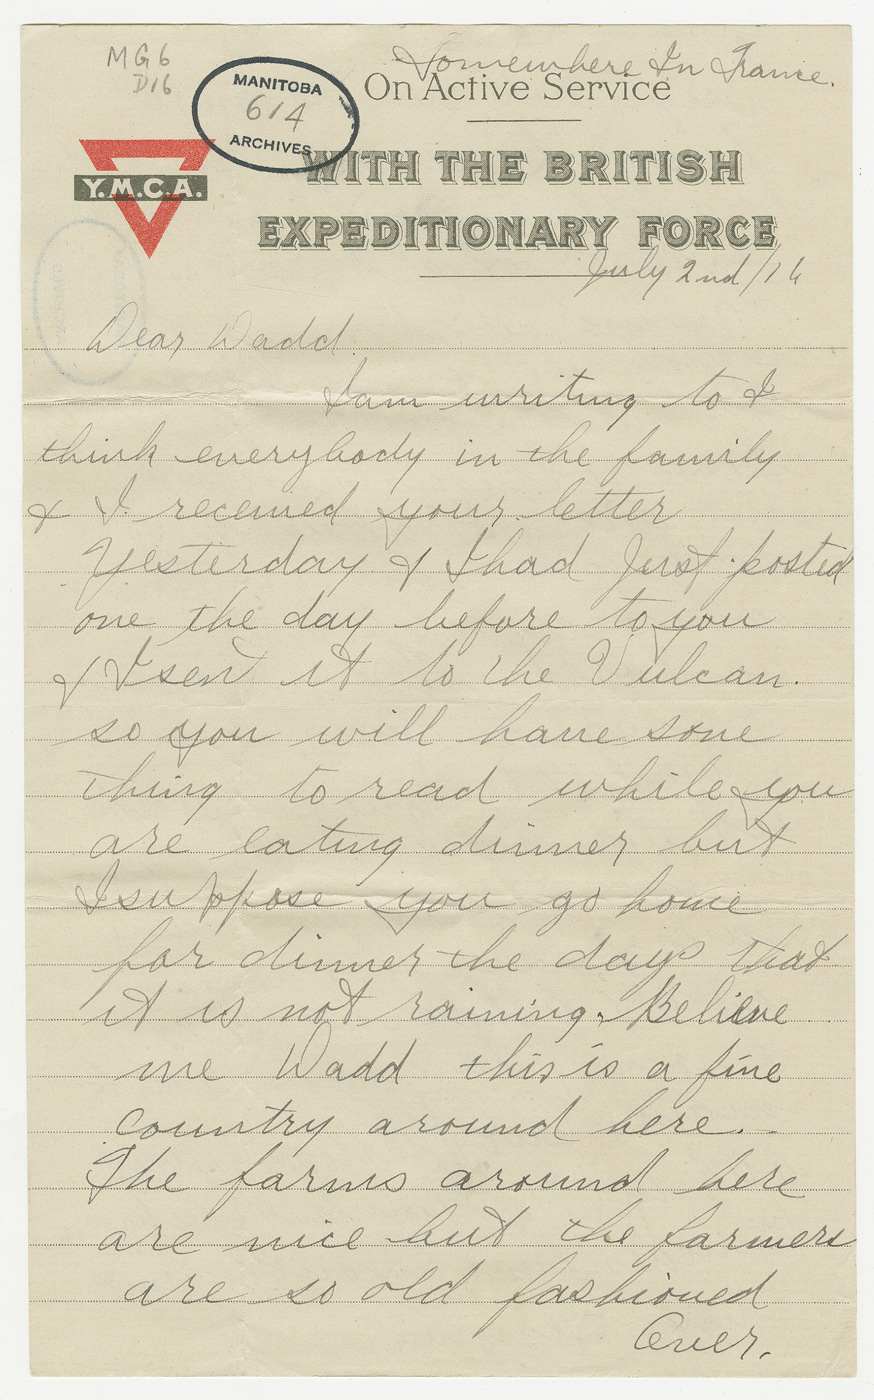 MG6
D16
MANITOBA
614
ARCHIVES
Somewhere In France.
On Active Service
WITH THE BRITISH
EXPEDITIONARY FORCE
Y.M.C.A.
July 2nd/16
Dear Wadd.
I am writing to I
think everybody in the family
& I received your letter
Yesterday & I had Just posted
one the day before to you
& I sent it to the Vulcan.
so you will have some
thing to read while you
are eating dinner but
I suppose you go home
for dinner the days that
it is not raining. Believe
me Wadd this is a fine
country around here.
The farms around here
are nice but the farmers
are so old fashioned
Over.